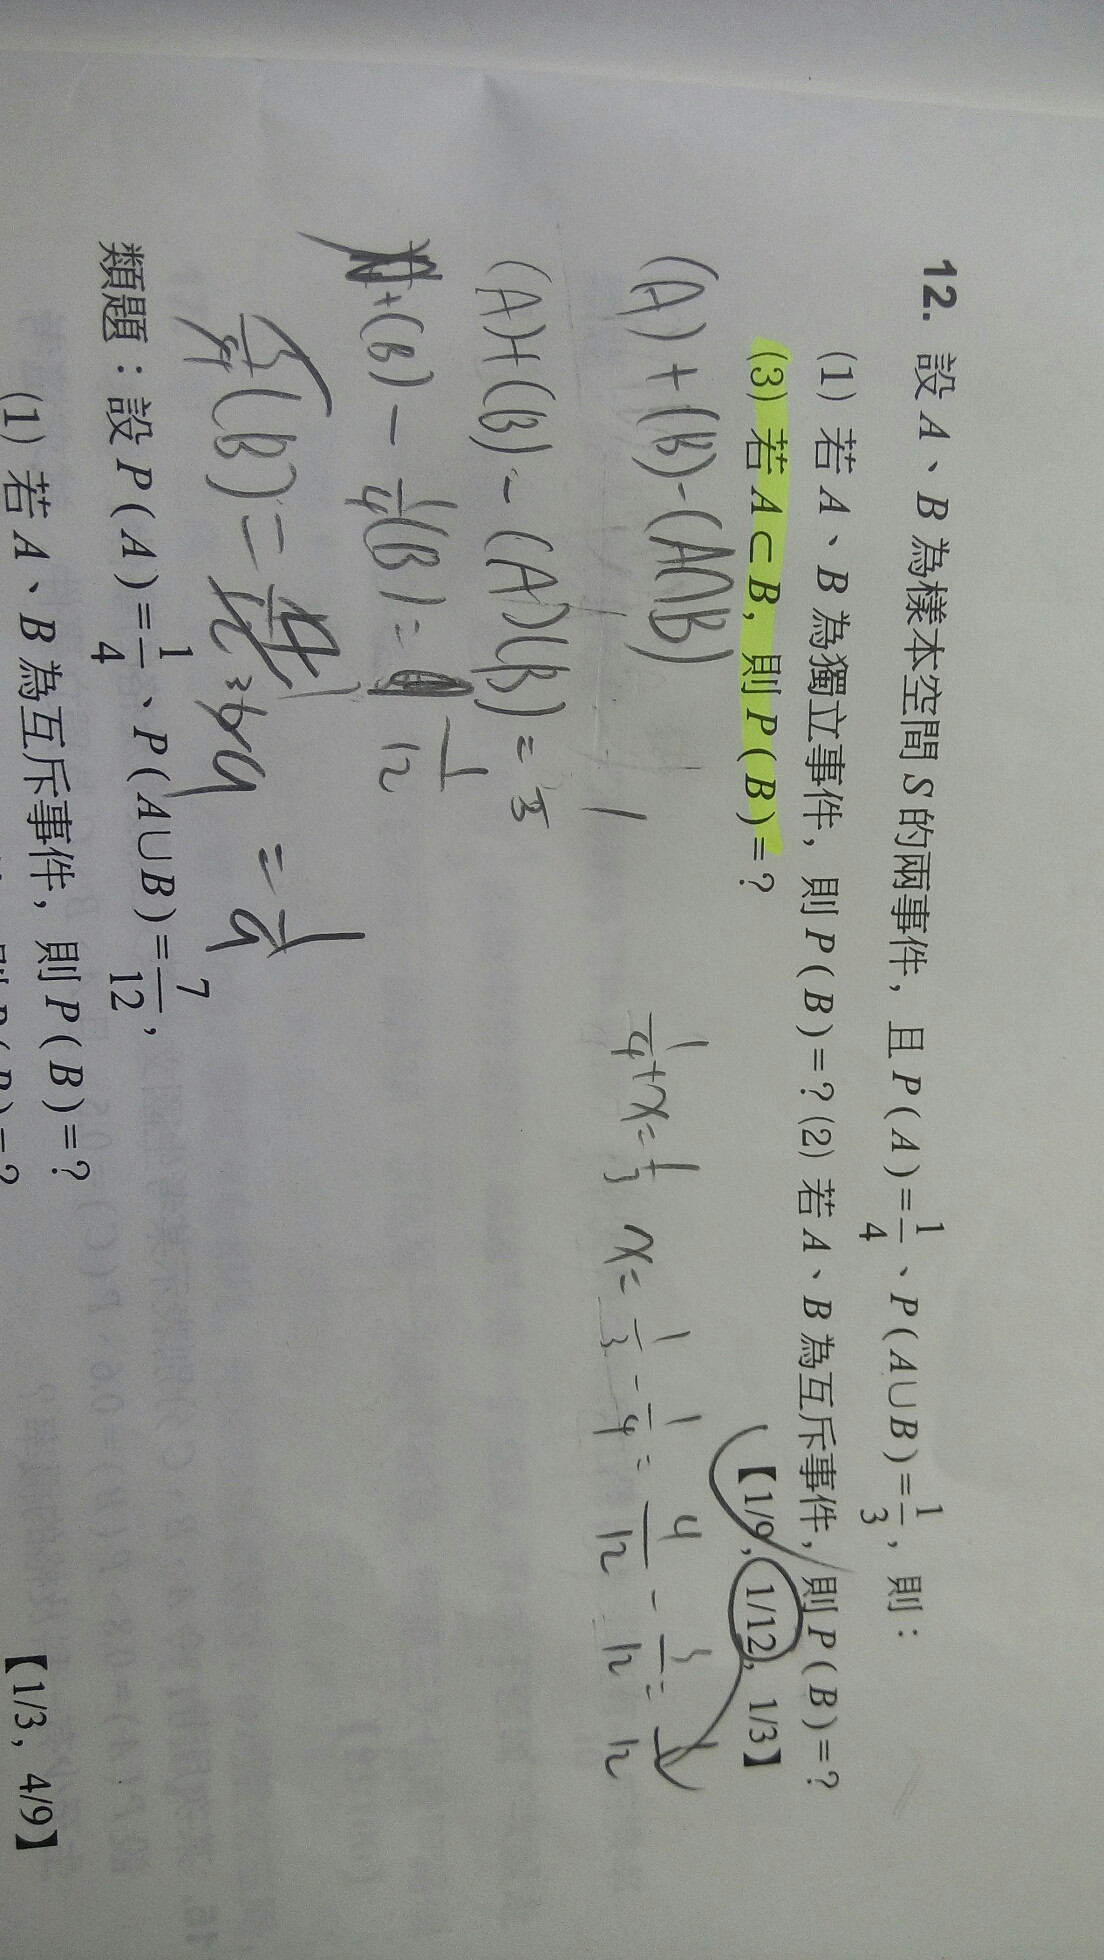 12. 設 A、B 為樣本空間 S 的兩事件，且 P(A)=1/4、P(A∪B)=1/3，則：
(1) 若 A、B 為獨立事件，則 P(B)=? (2) 若 A、B 為互斥事件，則 P(B)=?
(3) 若 A⊂B，則 P(B)=?
【1/9, 1/12, 1/3】
(A)+(B)-(A∩B)
1/4+x=1/3 x=1/3-1/4=4/12-3/12=1/12
(A)+(B)-(A)(B)=1/3
+(B)-1/4(B)=1/12
3/4(B)=
=1/9
類題：設 P(A)=1/4、P(A∪B)=7/12，
(1) 若 A、B 為互斥事件，則 P(B)=?
【1/3, 4/9】